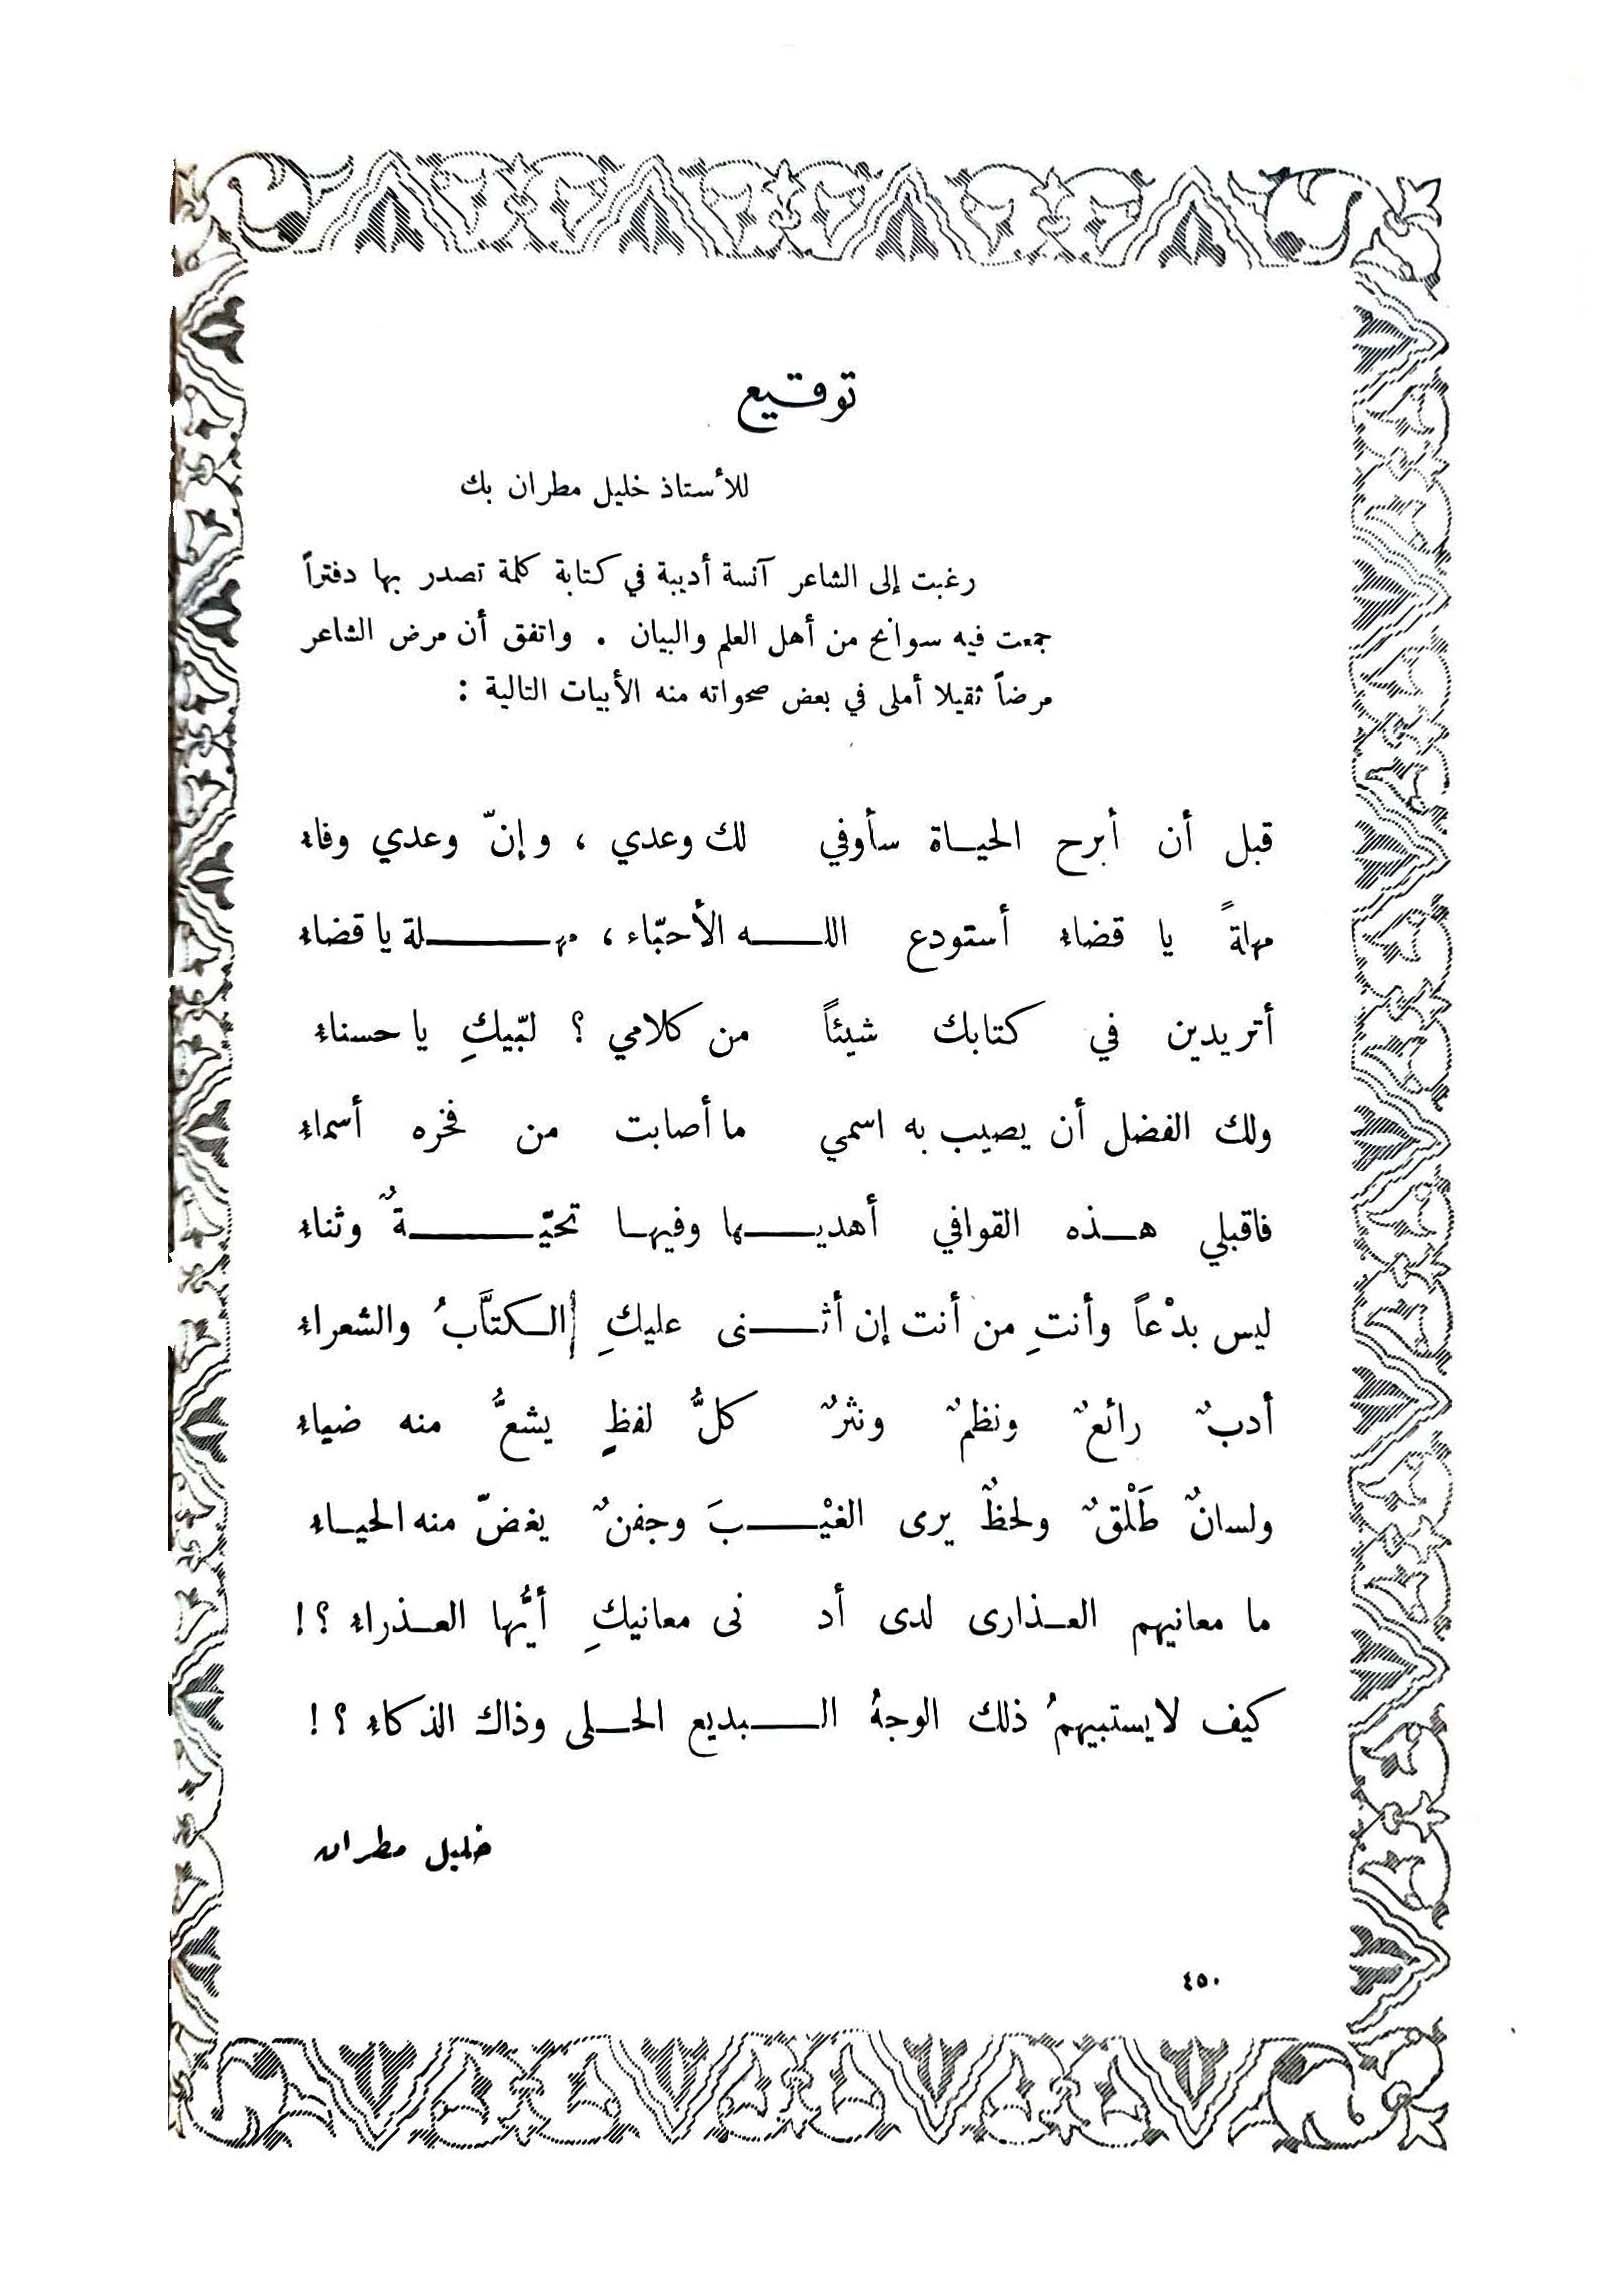 توقيع
للأستاذ خليل مطران بك
رغبت إلى الشاعر آنسة أديبة في كتابة كلمة تصدر بها دفتراً
جمعت فيه سوانح من أهل العلم والبيان . واتفق أن مرض الشاعر
مرضاً ثقيلا أملى في بعض صحواته منه الأبيات التالية :
قبل أن أبرح الحياة سأوفي لك وعدي ، وإنّ وعدي وفاء
مهلةً يا قضاء أستودع اللـه الأحبّاء ، مهـلة يا قضاء
أتريدين في كتابك شيئاً من كلامي ؟ لبّيكِ يا حسناء
ولك الفضل أن يصيب به اسمي ما أصابت من فخره أسماء
فاقبلي هذه القوافي أهديـها وفيها تحيّـةٌ وثناء
ليس بدْعاً وأنتِ من أنت إن أثـنى عليكِ الكتَّابُ والشعراء
أدبٌ رائعٌ ونظمٌ ونثرٌ كلُّ لفظٍ يشعُّ منه ضياء
ولسانٌ طَلْقٌ ولحظٌ يرى الغيْـبَ وجفنٌ يغضّ منه الحياء
ما معانيهم العذارى لدى أد نى معانيكِ أيُّها العذراء ؟!
كيف لا يستبيهمُ ذلك الوجهُ الـبديع الحلى وذاك الذكاء ؟!
خليل مطران
٤٥٠